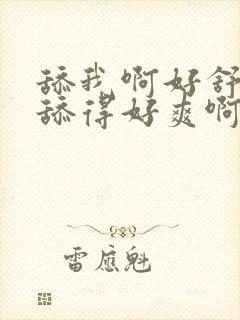 舔我啊好舒
舔得好爽啊
雷应魁